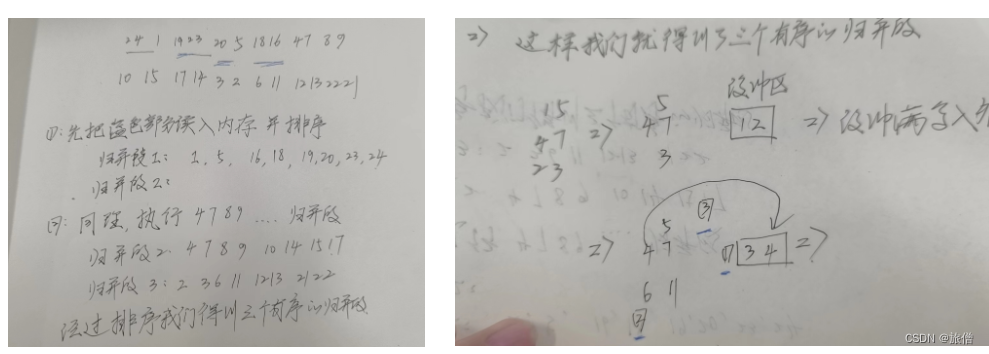 24 1 19 23 20 5 18 16 4 7 8 9
10 15 17 14 3 2 6 11 12 13 22 21
①:先把蓝色部分读入内存 并排序
归并段1: 1, 5, 16, 18, 19, 20, 23, 24
归并段2:
②: 同理,执行 4 7 8 9 .... 归并段
归并段2: 4 7 8 9 10 14 15 17
归并段 3: 2 3 6 11 12 13 21 22
通过排序我们得到三个有序的归并段
2) 这样我们就得到了三个有序的归并段
缓冲区
1 5
4 7
2 3
=>
5
4 7
3
1 2
=> 缓冲区满写入外
=>
5
4 7
6 11
②
③
①
3 4
=>
CSDN @旅僧